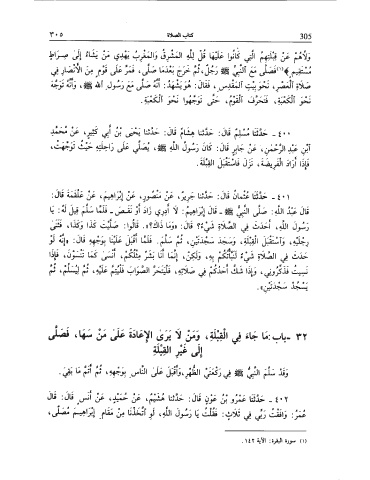 ٣٠٥ كتاب الصلاة 305
وَلَّاهُمْ عَنْ قِبْلَتِهِمُ الَّتِي كَانُوا عَلَيْهَا قُلْ لِلَّهِ المَشْرِقُ وَالمَغْرِبُ يَهْدِي مَنْ يَشَاءُ إِلَى صِرَاطٍ
مُسْتَقِيمٍ﴾(١) فَصَلَّى مَعَ النَّبِيِّ ﷺ رَجُلٌ، ثُمَّ خَرَجَ بَعْدَمَا صَلَّى، فَمَرَّ عَلَى قَوْمٍ مِنَ الأَنْصَارِ فِي
صَلَاةِ العَصْرِ، نَحْوَ بَيْتِ المَقْدِسِ، فَقَالَ: هُوَ يَشْهَدُ: أَنَّهُ صَلَّى مَعَ رَسُولِ اللهِ ﷺ، وَأَنَّهُ تَوَجَّهَ
نَحْوَ الكَعْبَةِ، فَتَحَرَّفَ القَوْمُ، حَتَّى تَوَجَّهُوا نَحْوَ الكَعْبَةِ.
٤٠٠ - حَدَّثَنَا مُسْلِمٌ قَالَ: حَدَّثَنَا هِشَامٌ قَالَ: حَدَّثَنَا يَحْيَى بْنُ أَبِي كَثِيرٍ، عَنْ مُحَمَّدِ
ابْنِ عَبْدِ الرَّحْمَنِ، عَنْ جَابِرٍ قَالَ: كَانَ رَسُولُ اللَّهِ ﷺ، يُصَلِّي عَلَى رَاحِلَتِهِ حَيْثُ تَوَجَّهَتْ،
فَإِذَا أَرَادَ الفَرِيضَةَ، نَزَلَ فَاسْتَقْبَلَ القِبْلَةَ.
٤٠١ - حَدَّثَنَا عُثْمَانُ قَالَ: حَدَّثَنَا جَرِيرٌ، عَنْ مَنْصُورٍ، عَنْ إِبْرَاهِيمَ، عَنْ عَلْقَمَةَ قَالَ:
قَالَ عَبْدُ اللَّهِ: صَلَّى النَّبِيُّ ﷺ - قَالَ إِبْرَاهِيمُ: لَا أَدْرِي زَادَ أَوْ نَقَصَ - فَلَمَّا سَلَّمَ قِيلَ لَهُ: يَا
رَسُولَ اللَّهِ، أَحَدَثَ فِي الصَّلَاةِ شَيْءٌ؟ قَالَ: «وَمَا ذَاكَ؟». قَالُوا: صَلَّيْتَ كَذَا وَكَذَا، فَثَنَى
رِجْلَيْهِ، وَاسْتَقْبَلَ القِبْلَةَ، وَسَجَدَ سَجْدَتَيْنِ، ثُمَّ سَلَّمَ. فَلَمَّا أَقْبَلَ عَلَيْنَا بِوَجْهِهِ قَالَ: «إِنَّهُ لَوْ
حَدَثَ فِي الصَّلَاةِ شَيْءٌ لَنَبَّأْتُكُمْ بِهِ، وَلَكِنْ، إِنَّمَا أَنَا بَشَرٌ مِثْلُكُمْ، أَنْسَى كَمَا تَنْسَوْنَ، فَإِذَا
نَسِيتُ فَذَكِّرُونِي، وَإِذَا شَكَّ أَحَدُكُمْ فِي صَلَاتِهِ، فَلْيَتَحَرَّ الصَّوَابَ فَلْيُتِمَّ عَلَيْهِ، ثُمَّ لِيُسَلِّمْ، ثُمَّ
يَسْجُدُ سَجْدَتَيْنِ».
٣٢ - باب: مَا جَاءَ فِي القِبْلَةِ، وَمَنْ لَا يَرَى الإِعَادَةَ عَلَى مَنْ سَهَا، فَصَلَّى
إِلَى غَيْرِ القِبْلَةِ
وَقَدْ سَلَّمَ النَّبِيُّ ﷺ فِي رَكْعَتَيِ الظُّهْرِ، وَأَقْبَلَ عَلَى النَّاسِ بِوَجْهِهِ، ثُمَّ أَتَمَّ مَا بَقِيَ.
٤٠٢ - حَدَّثَنَا عَمْرُو بْنُ عَوْنٍ قَالَ: حَدَّثَنَا هُشَيْمٌ، عَنْ حُمَيْدٍ، عَنْ أَنَسٍ قَالَ: قَالَ
عُمَرُ: وَافَقْتُ رَبِّي فِي ثَلَاثٍ: فَقُلْتُ يَا رَسُولَ اللَّهِ، لَوِ اتَّخَذْنَا مِنْ مَقَامِ إِبْرَاهِيمَ مُصَلًّى،
(١) سورة البقرة: الآية ١٤٢.